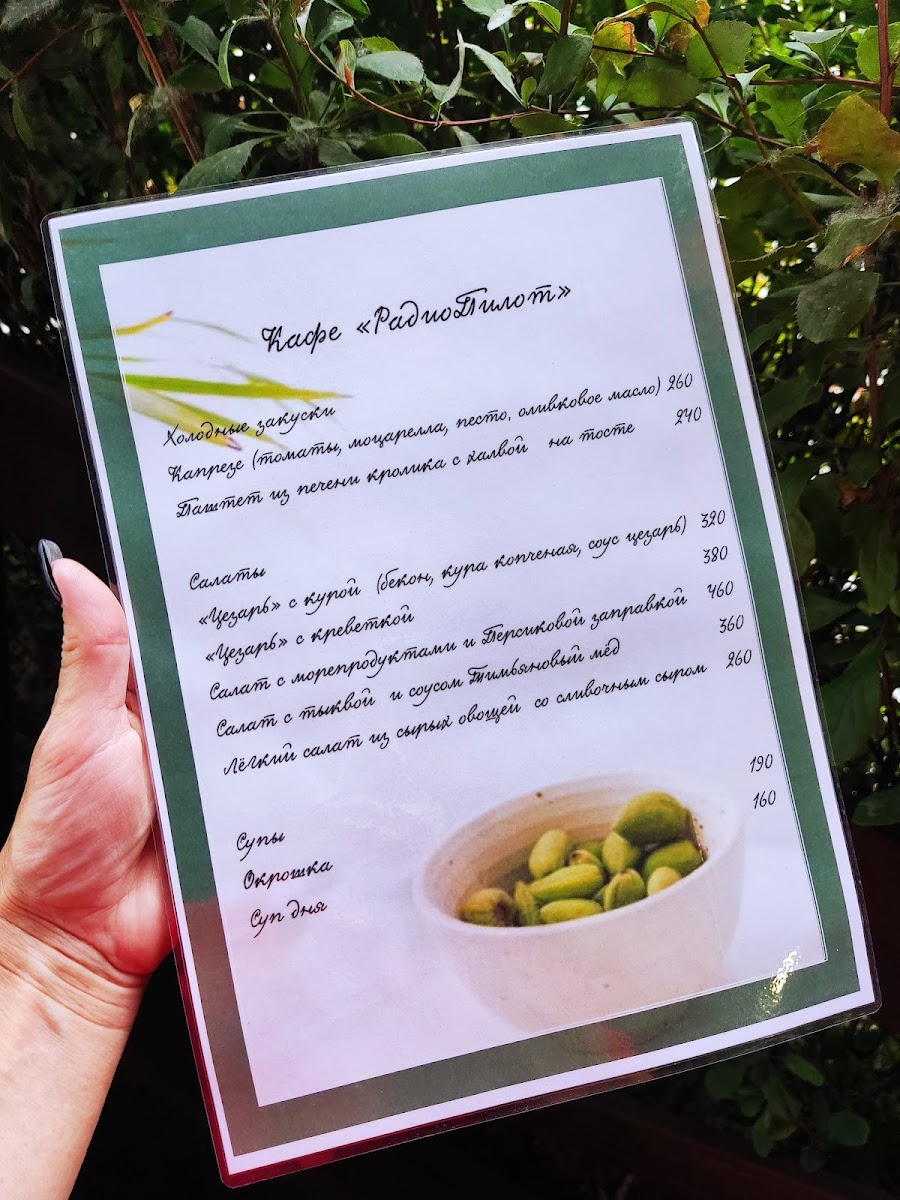 Кафе «РадиоПилот»
Холодные закуски
Капрезе (томаты, моцарелла, песто, оливковое масло) 260
Паштет из печени кролика с халвой на тосте 240
Салаты
«Цезарь» с курой (бекон, кура копченая, соус цезарь) 320
«Цезарь» с креветкой 380
Салат с морепродуктами и Персиковой заправкой 460
Салат с тыквой и соусом Тимьяновый мёд 360
Лёгкий салат из сырых овощей со сливочным сыром 260
Супы
Окрошка 190
Суп дня 160